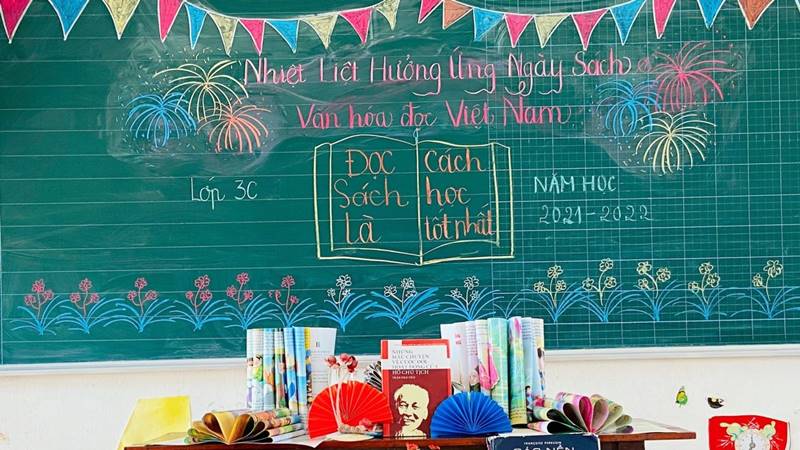 Nhiệt Liệt Hưởng Ứng Ngày Sách
Văn hóa đọc Việt Nam
Đọc
Sách
Là
Cách
học
tốt nhất
Lớp 3C
NĂM HỌC
2021-2022
NHỮNG
MẨU CHUYỆN
VỀ CUỘC ĐỜI
HOẠT ĐỘNG CỦA
HỒ CHỦ TỊCH